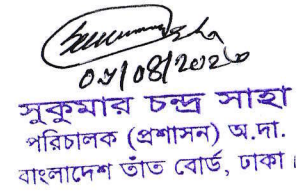 ০৯/০৪/২০২৩
সুকুমার চন্দ্র সাহা
পরিচালক (প্রশাসন) অ.দা.
বাংলাদেশ তাঁত বোর্ড, ঢাকা।